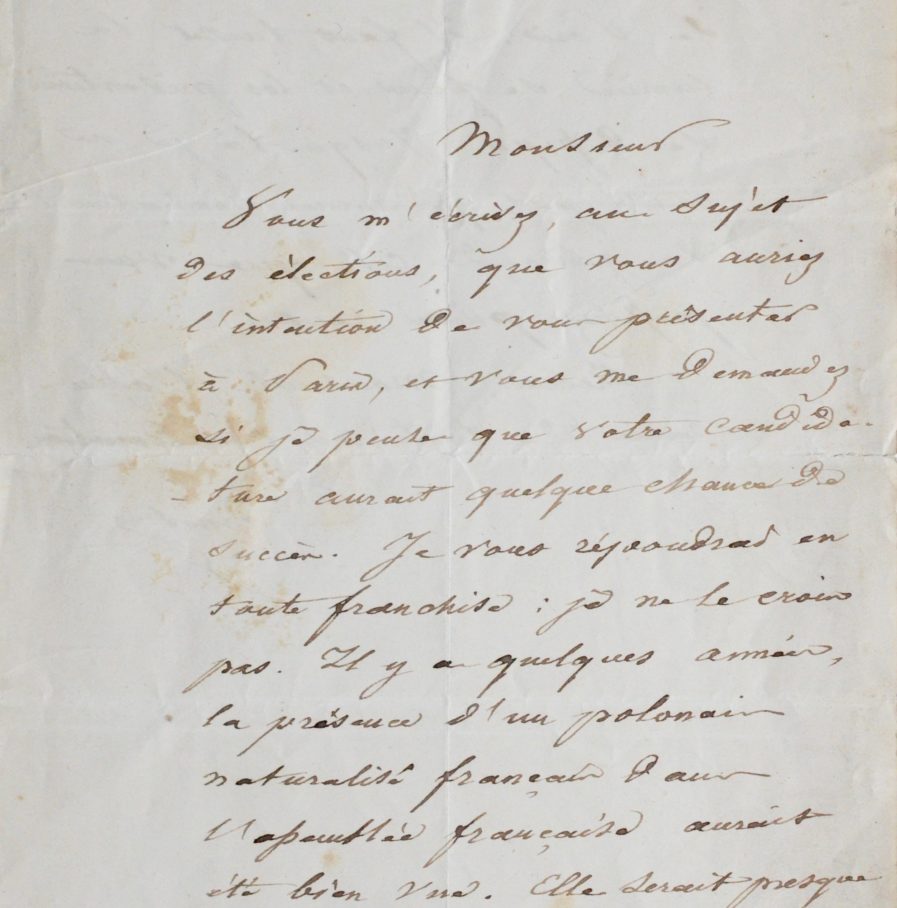 Monsieur
Vous m'écrivez, au sujet
des élections, que vous auriez
l'intention de vous présenter
à Paris, et vous me demandez
si je pense que votre candida-
ture aurait quelque chance de
succès. Je vous répondrai en
toute franchise : je ne le crois
pas. Il y a quelques années,
la présence d'un polonais
naturalisé français dans
l'assemblée française aurait
été bien vue. Elle serait presque